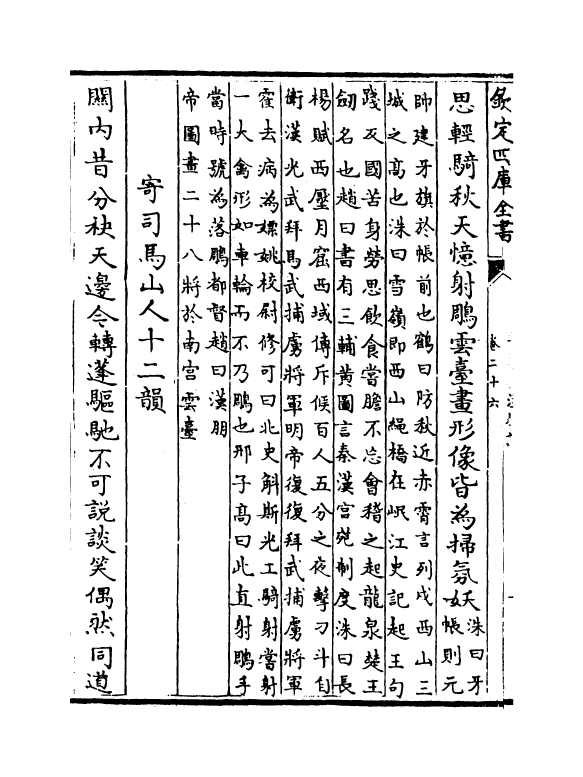 欽定四庫全書
卷二十六
思輕騎秋天憶射鵰雲臺畫形像皆為掃氛妖洙曰牙
帳則元
帥建牙旗於帳前也鶴曰防秋近赤霄言列戍西山三
城之高也洙曰雪嶺即西山繩橋在岷江史記起王句
踐反國苦身勞思飲食嘗膽不忘會稽之起龍泉楚王
劒名也趙曰書有三輔黄圖言秦漢宫苑制度洙曰長
楊賦西壓月窟西域傳斥候百人五分之夜擊刁斗自
衛漢光武拜馬武捕虜將軍明帝復復拜武捕虜將軍
霍去病為嫖姚校尉修可曰北史斛斯光工騎射嘗射
一大禽形如車輪而下乃鵰也邢子髙曰此真射鵰手
當時號為落鵰都督趙曰漢明
帝圖畫二十八將於南宫雲臺
寄司馬山人十二韻
關内昔分袂天邊今轉蓬驅馳不可說談笑偶然同道